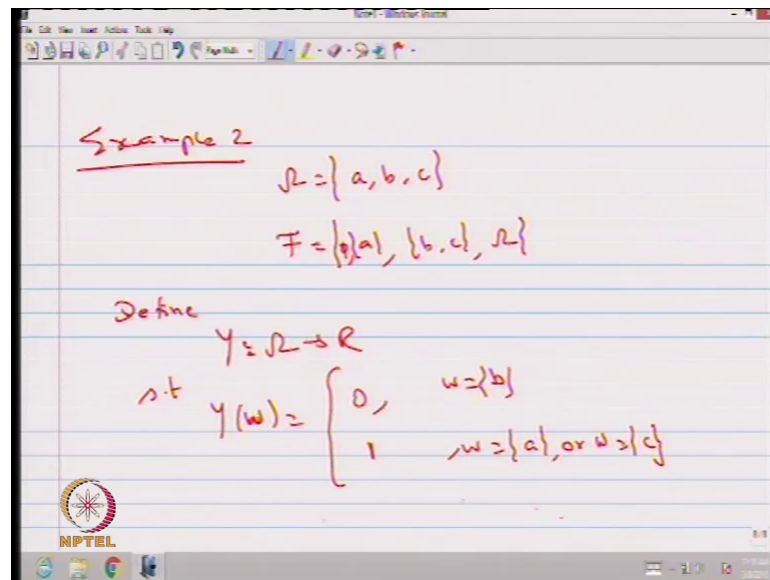 Note1 - Windows Journal
File Edit View Insert Actions Tools Help
Page Width
Example 2
Ω = { a, b, c }
F = { φ, {a}, {b, c}, Ω }
Define
Y : Ω → R
s.t Y(w) = { 0, w = {b}
1 , w = {a}, or w = {c}
NPTEL
8/8